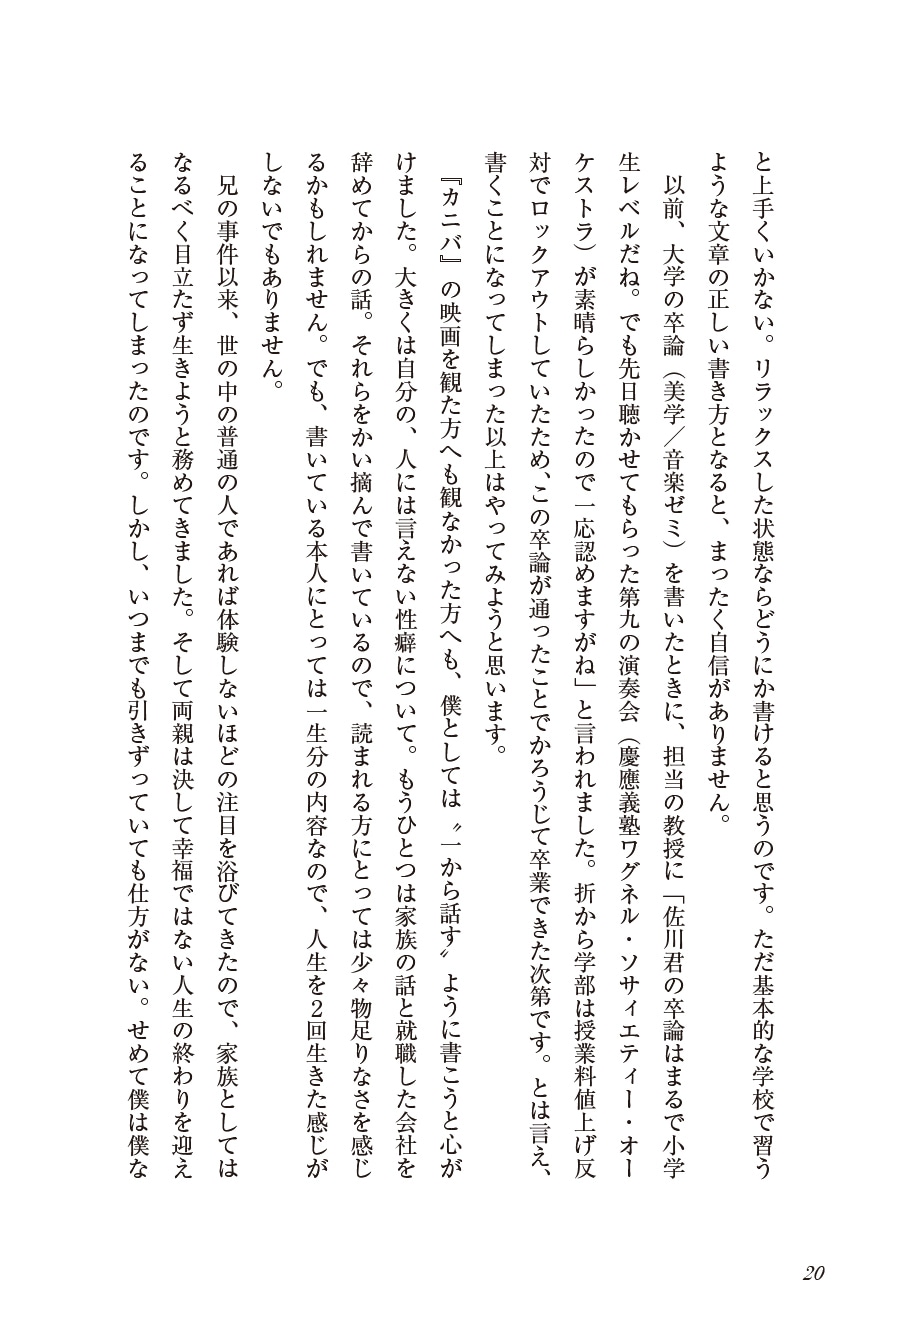 と上手くいかない。リラックスした状態ならどうにか書けると思うのです。ただ基本的な学校で習う
ような文章の正しい書き方となると、まったく自信がありません。
以前、大学の卒論（美学／音楽ゼミ）を書いたときに、担当の教授に「佐川君の卒論はまるで小学
生レベルだね。でも先日聴かせてもらった第九の演奏会（慶應義塾ワグネル・ソサィエティー・オー
ケストラ）が素晴らしかったので一応認めますがね」と言われました。折から学部は授業料値上げ反
対でロックアウトしていたため、この卒論が通ったことでかろうじて卒業できた次第です。とは言え、
書くことになってしまった以上はやってみようと思います。
『カニバ』の映画を観た方へも観なかった方へも、僕としては〝一から話す〟ように書こうと心が
けました。大きくは自分の、人には言えない性癖について。もうひとつは家族の話と就職した会社を
辞めてからの話。それらをかい摘んで書いているので、読まれる方にとっては少々物足りなさを感じ
るかもしれません。でも、書いている本人にとっては一生分の内容なので、人生を２回生きた感じが
しないでもありません。
兄の事件以来、世の中の普通の人であれば体験しないほどの注目を浴びてきたので、家族としては
なるべく目立たず生きようと務めてきました。そして両親は決して幸福ではない人生の終わりを迎え
ることになってしまったのです。しかし、いつまでも引きずっていても仕方がない。せめて僕は僕な
20